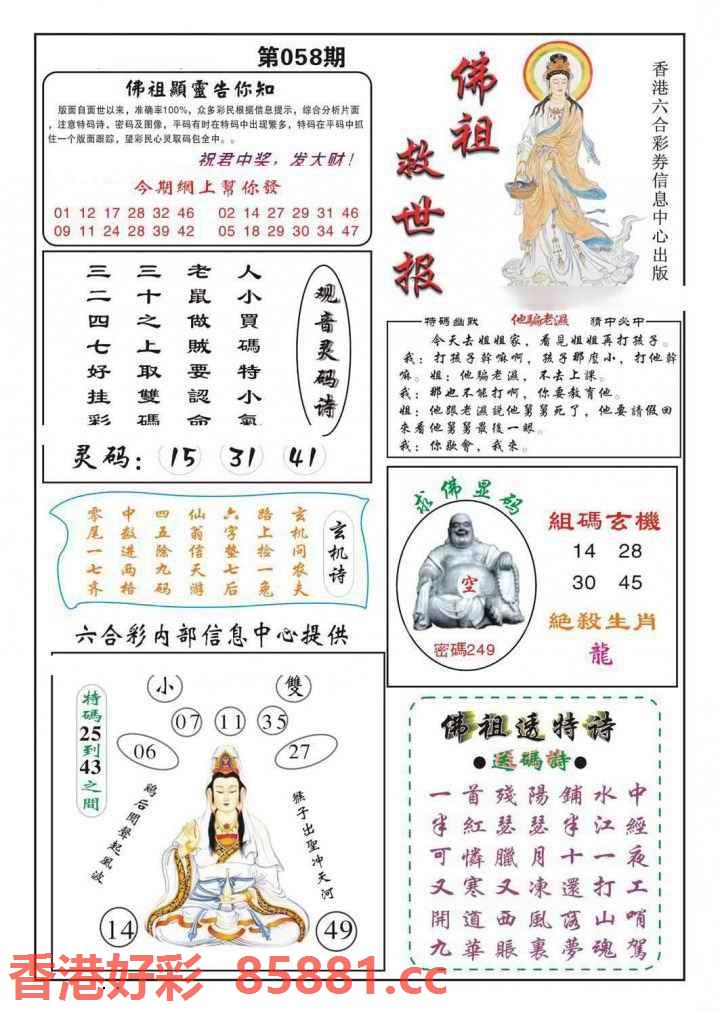 第058期
佛祖顯靈告你知
版面自面世以来，准确率100%，众多彩民根据信息提示，综合分析片面
，注意特码诗、密码及图像，平码有时在特码中出现繁多，特码在平码中抓
住一个版面跟踪，望彩民心灵取码包全中。。
祝君中奖，发大财！
今期網上幫你發
01 12 17 28 32 46 02 14 27 29 31 46
09 11 24 28 39 42 05 18 29 30 34 47
佛祖救世报
香港六合彩券信息中心出版
观音灵码诗
人小買碼特小氣
老鼠做賊要認命
三十之上取雙碼
三二四七好挂彩
灵码：15 31 41
特碼幽默 他騙老濕 猜中必中
今天去姐姐家，看見姐姐再打孩子。
我：打孩子幹嘛啊，孩子那麼小，打他幹
嘛。姐：他騙老濕，不去上課。
我：那也不能打啊，你要教育他。
姐：他跟老濕說他舅舅死了，他要請假回
來看他舅舅最後一眼。
我：你歇會，我來。
玄机诗
玄机问农夫
路上捡一兔
六字垫七后
仙翁信天游
四五除九码
中数进两格
零尾一七齐
六合彩内部信息中心提供
求佛显码
空
密碼249
組碼玄機
14 28
30 45
絕殺生肖
龍
特碼25到43之間
小 雙
07 11 35
06 27
鷄后聞聲起風波
猴子出聖冲天河
14 49
佛祖透特诗
●送碼詩●
一首殘陽鋪水中
半紅瑟瑟半江經
可憐臘月十一夜
又寒又凍還打工
開道西風落山哨
九華賬裏夢魂駕
香港好彩 85881.cc